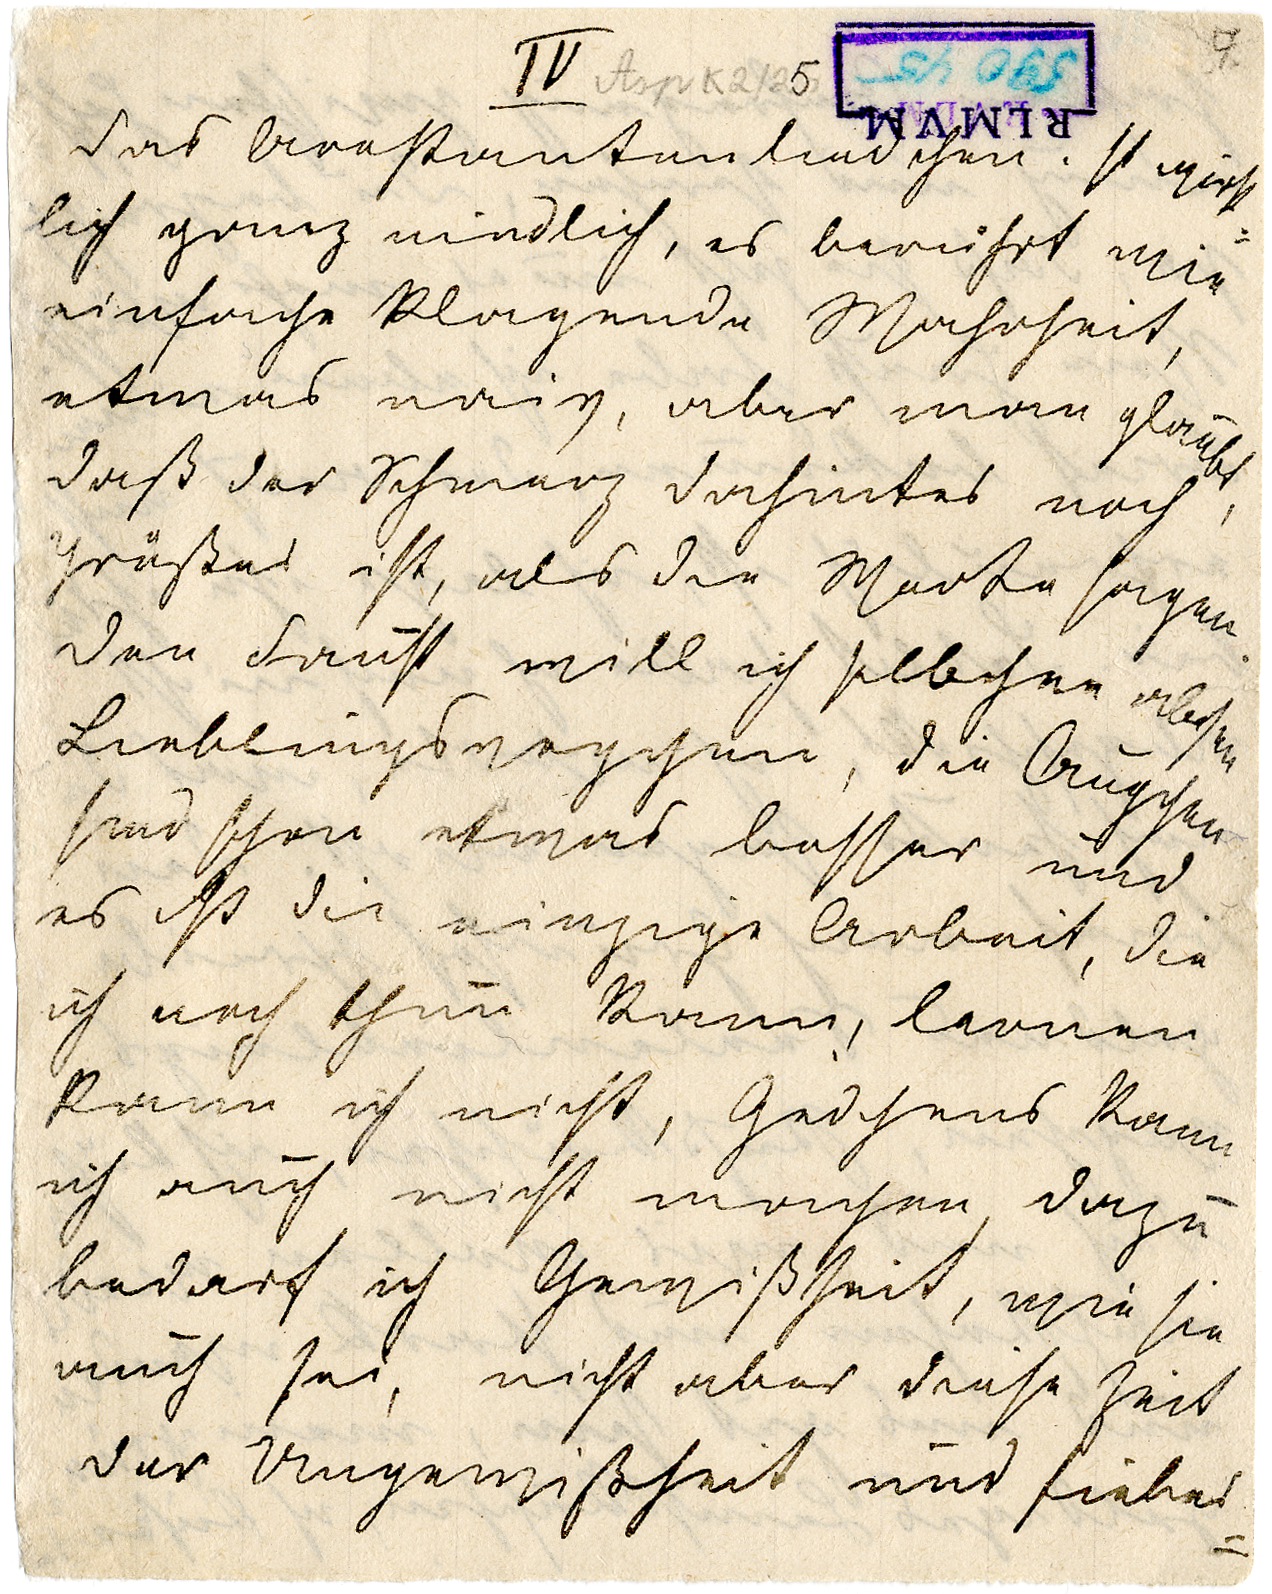 IV AspK2/25 5
RLMVM
59045
das Arestantenliedchen. Ist wirk=
lich ganz niedlich, es berührt wie
einfache klagende Wahrheit,
etwas naiv, aber man glaubt,
daß der Schmerz dahinter noch
größer ist, als die Worte sagen.
Den Faust will ich selbchen abchen
Lieblingsveggchen, die Augchen
sind schon etwas besser und
es ist die einzige Arbeit, die
ich noch thun kann, lernen
kann ich nicht, Gedchens kann
ich auch nicht machen, dazu
bedarf ich Gewißheit, wie sie
auch sei, nicht aber diese Zeit
der Ungewißheit und fieber=